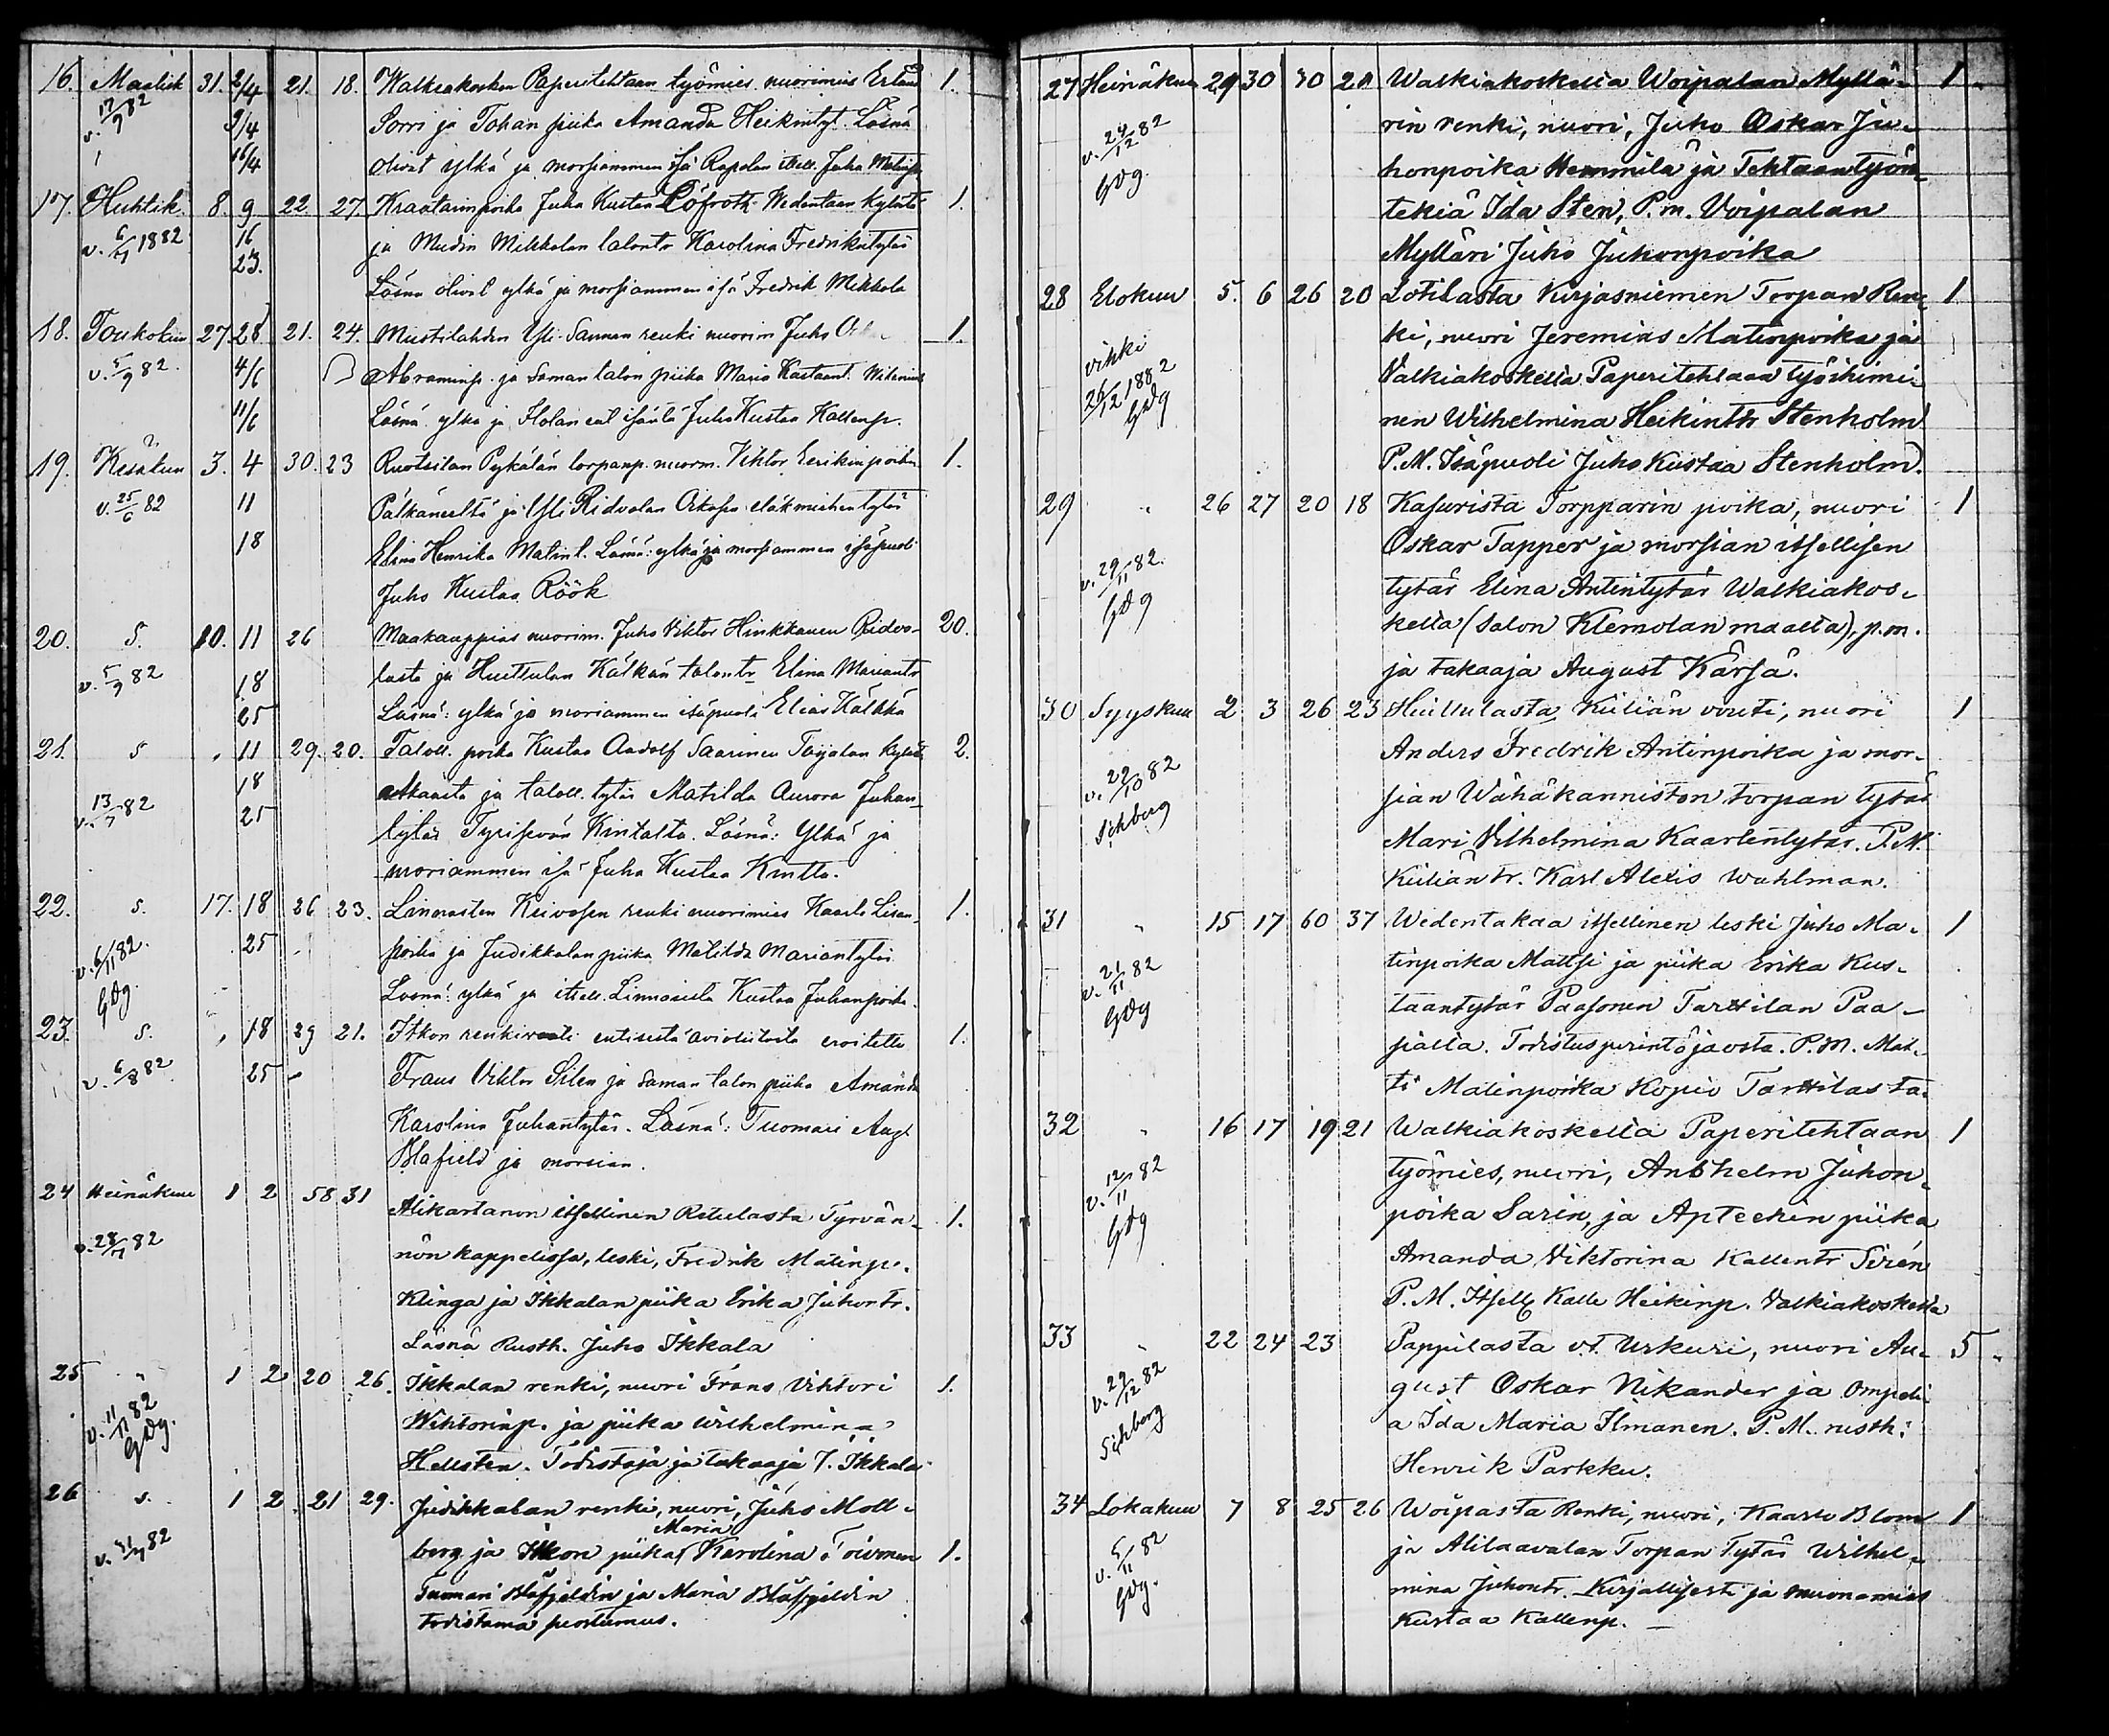 16. Maalisk 31. 2/4 21. 18. Walkiakosken Paperitehtaan työmies nuorimies Erland 1.
v. 17/9 82 9/4 Sorri ja Tohan piika Amanda Heikintyt. Läsnä
16/4 olivat ylkä ja morsiammen isä Rapolan itsell. Juha
17. Huhtik. 8. 9 22 27. Kraatarinpoika Juha Kustaa Löfroth Wedentaan kylästä 1.
v. 6/7 1882 16 ja Mudin Mikkolan talontr Karolina Fredrikintytär
23. Läsnä olivat ylkä ja morsiammen isä Fredrik Mikkola
18. Toukokuu 27. 28 21. 24. Mustilahden Yli-Sannan renki nuorim Juho 1.
v. 5/9 82. 4/6 Abraminp. ja Saman talon piika Maria Kustaant.
11/6 Läsnä ylkä ja Flolan ent isäntä Juho Kustaa Kallenp.
19. Kesäkuu 3. 4 30. 23 Ruotsilan Pykälän torpanp. nuorm. Viktor Eerikinpoika 1.
v. 25/6 82 11 Pälkäneeltä ja Yli Ridvalan eläkmiehentytär
18 Elina Henrika Matint. Läsnä: ylkä ja morsiammen isäpuoli
Juho Kustaa Röök
20. S. 10. 11 26 Maakauppias nuorim. Juho Viktor Hinkkanen Ridva- 20.
v. 5/9 82 18 lasta ja Huittulan Kälkän talontr Elina Mariantr
25 Läsnä: ylkä ja moriammen isäpuoli Elias Kälkkä
21. S 11 29. 20. Taloll. poika Kustaa Aadolf Saarinen Toijalan kylästä 2.
18 Akaasta ja taloll. tytär Matilda Aurora Juhan-
v. 13/7 82 25 tytär Tyrisevän Kintalta. Läsnä: Ylkä ja
moriammen isä Juha Kustaa Kintta.
22. S. 17. 18 26 23. Linnaisten Keivosen renki nuorimies Kaarle Lisan- 1.
v. 6/11 82. 25 poika ja Judikkalan piika Matilda Mariantytär
GDg. Läsnä: ylkä ja itsell. Linnaisista Kustaa Juhanpoika.
23. S. 18 29 21. Itkon renkivouti entisestä avioliitosta eroitettu 1.
v. 6/8 82 25 Frans Viktor Silen ja Saman talon piika Amanda
Karolina Juhantytär. Läsnä: Tuomari Aug.
Blafield ja morsian.
24 Heinäkuu 1 2 58 31 Alikartanon itsellinen Retulasta Tyrvän- 1.
v. 28/7 82 nön kappelissa, leski, Fredrik Matinp.
Klinga ja Ikkalan piika Erika Juhontr.
Läsnä Rusth. Juho Ikkala
25 " 1 2 20 26. Ikkalan renki, nuori Frans Vihtori 1.
v. 11/11 82 Wihtorinp. ja piika Wilhelmina
GDg. Hellsten. Todistaja ja takaaja J. Ikkala
26 S. 1 2. 21 29. Judikkalan renki, nuori, Juho Moll-
Maria
v. 31/7 82 berg ja Itkon piika Karolina Toivonen 1.
Tuomari Blåfjeldin ja Maria Blåfjeldin
todistama suostumus.
27 Heinäkuu 29 30 30 20 Walkiakoskella Woipalan Myllä- 1
v. 24/12 82 rin renki, nuori, Juho Oskar Ju-
GDg. honpoika Hemmilä ja Tehtaantyön-
tekiä Ida Sten, P.m. Voipalan
Mylläri Juho Juhonpoika
28 Elokuu 5. 6 26 20 Lotilasta Kirjasniemen Torpan Ren- 1
vihki ki, nuori Jeremias Matinpoika ja
26/12 1882 Valkiakoskella Paperitehtaan työihmi-
GDg nen Wilhelmina Heikintr Stenholm
P.M. Isäpuoli Juho Kustaa Stenholm.
29 " 26 27 20 18 Kasurista Torpparin poika, nuori 1
Oskar Tapper ja morsian itsellisen
v. 29/11 82. tytär Elina Antintytär Walkiakos-
GDg kella (Salon Klemolan maalla), p.m.
ja takaaja August Kärsä.
30 Syyskuu 2 3 26 23 Huittulasta Kiiliän vouti, nuori 1
Anders Fredrik Antinpoika ja mor-
v. 22/10 82 sian Wähäkanniston torpan tytär
Sihberg Mari Vilhelmina Kaarlentytär. P.M.
Kiiliän tr. Karl Alexis Wahlman.
31 " 15 17 60 37 Wedentakaa itsellinen leski Juho Ma- 1
v. 21/11 82 tinpoika Mattsi ja piika Erika Kus-
GDg taantytär Paasonen Tarttilan Paa-
sialla. Todistus perintöjaosta. P.M. Mat-
ti Matinpoika Kopio Tarttilasta.
32 " 16 17 19 21 Walkiakoskella Paperitehtaan 1
v. 12/11 82 työmies, nuori, Anshelm Juhon-
GDg poika Sarin, ja Apteekin piika
Amanda Viktorina Kallentr Sirén
P.M. Itsell Kalle Heikinp. Valkiakoskella
33 " 22 24 23 Pappilasta v.t. Urkuri, nuori Au- 5
v. 29/12 82 gust Oskar Nikander ja Ompeli-
Sihberg a Ida Maria Ilmanen. P.M. rusth:
Henrik Parkku.
34 Lokakuu 7 8 25 26 Woipasta Renki, nuori, Kaarle Blom 1
v. 5/11 82 ja Alilaavalan Torpan Tytär Wilhel-
GDg. mina Juhontr. Kirjallisesti ja muonamies
Kustaa Kallenp.